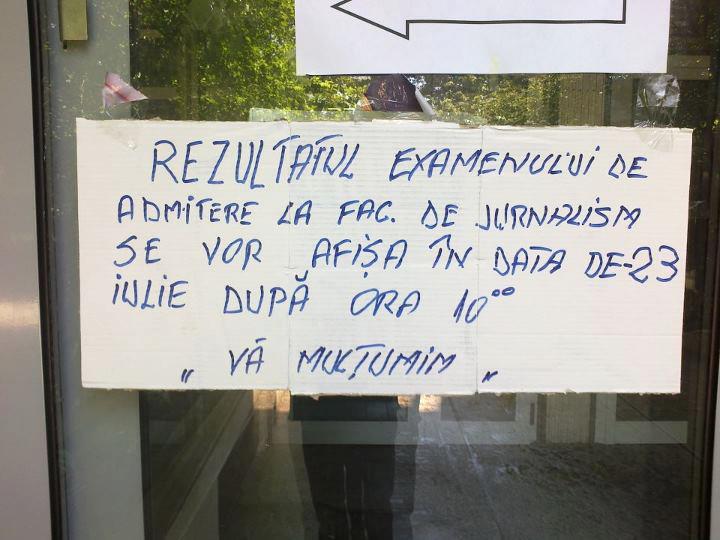 REZULTATUL EXAMENULUI DE
ADMITERE LA FAC. DE JURNALISM
SE VOR AFIȘA ÎN DATA DE-23
IULIE DUPĂ ORA 10⁰⁰
„ VĂ MULȚUMIM „